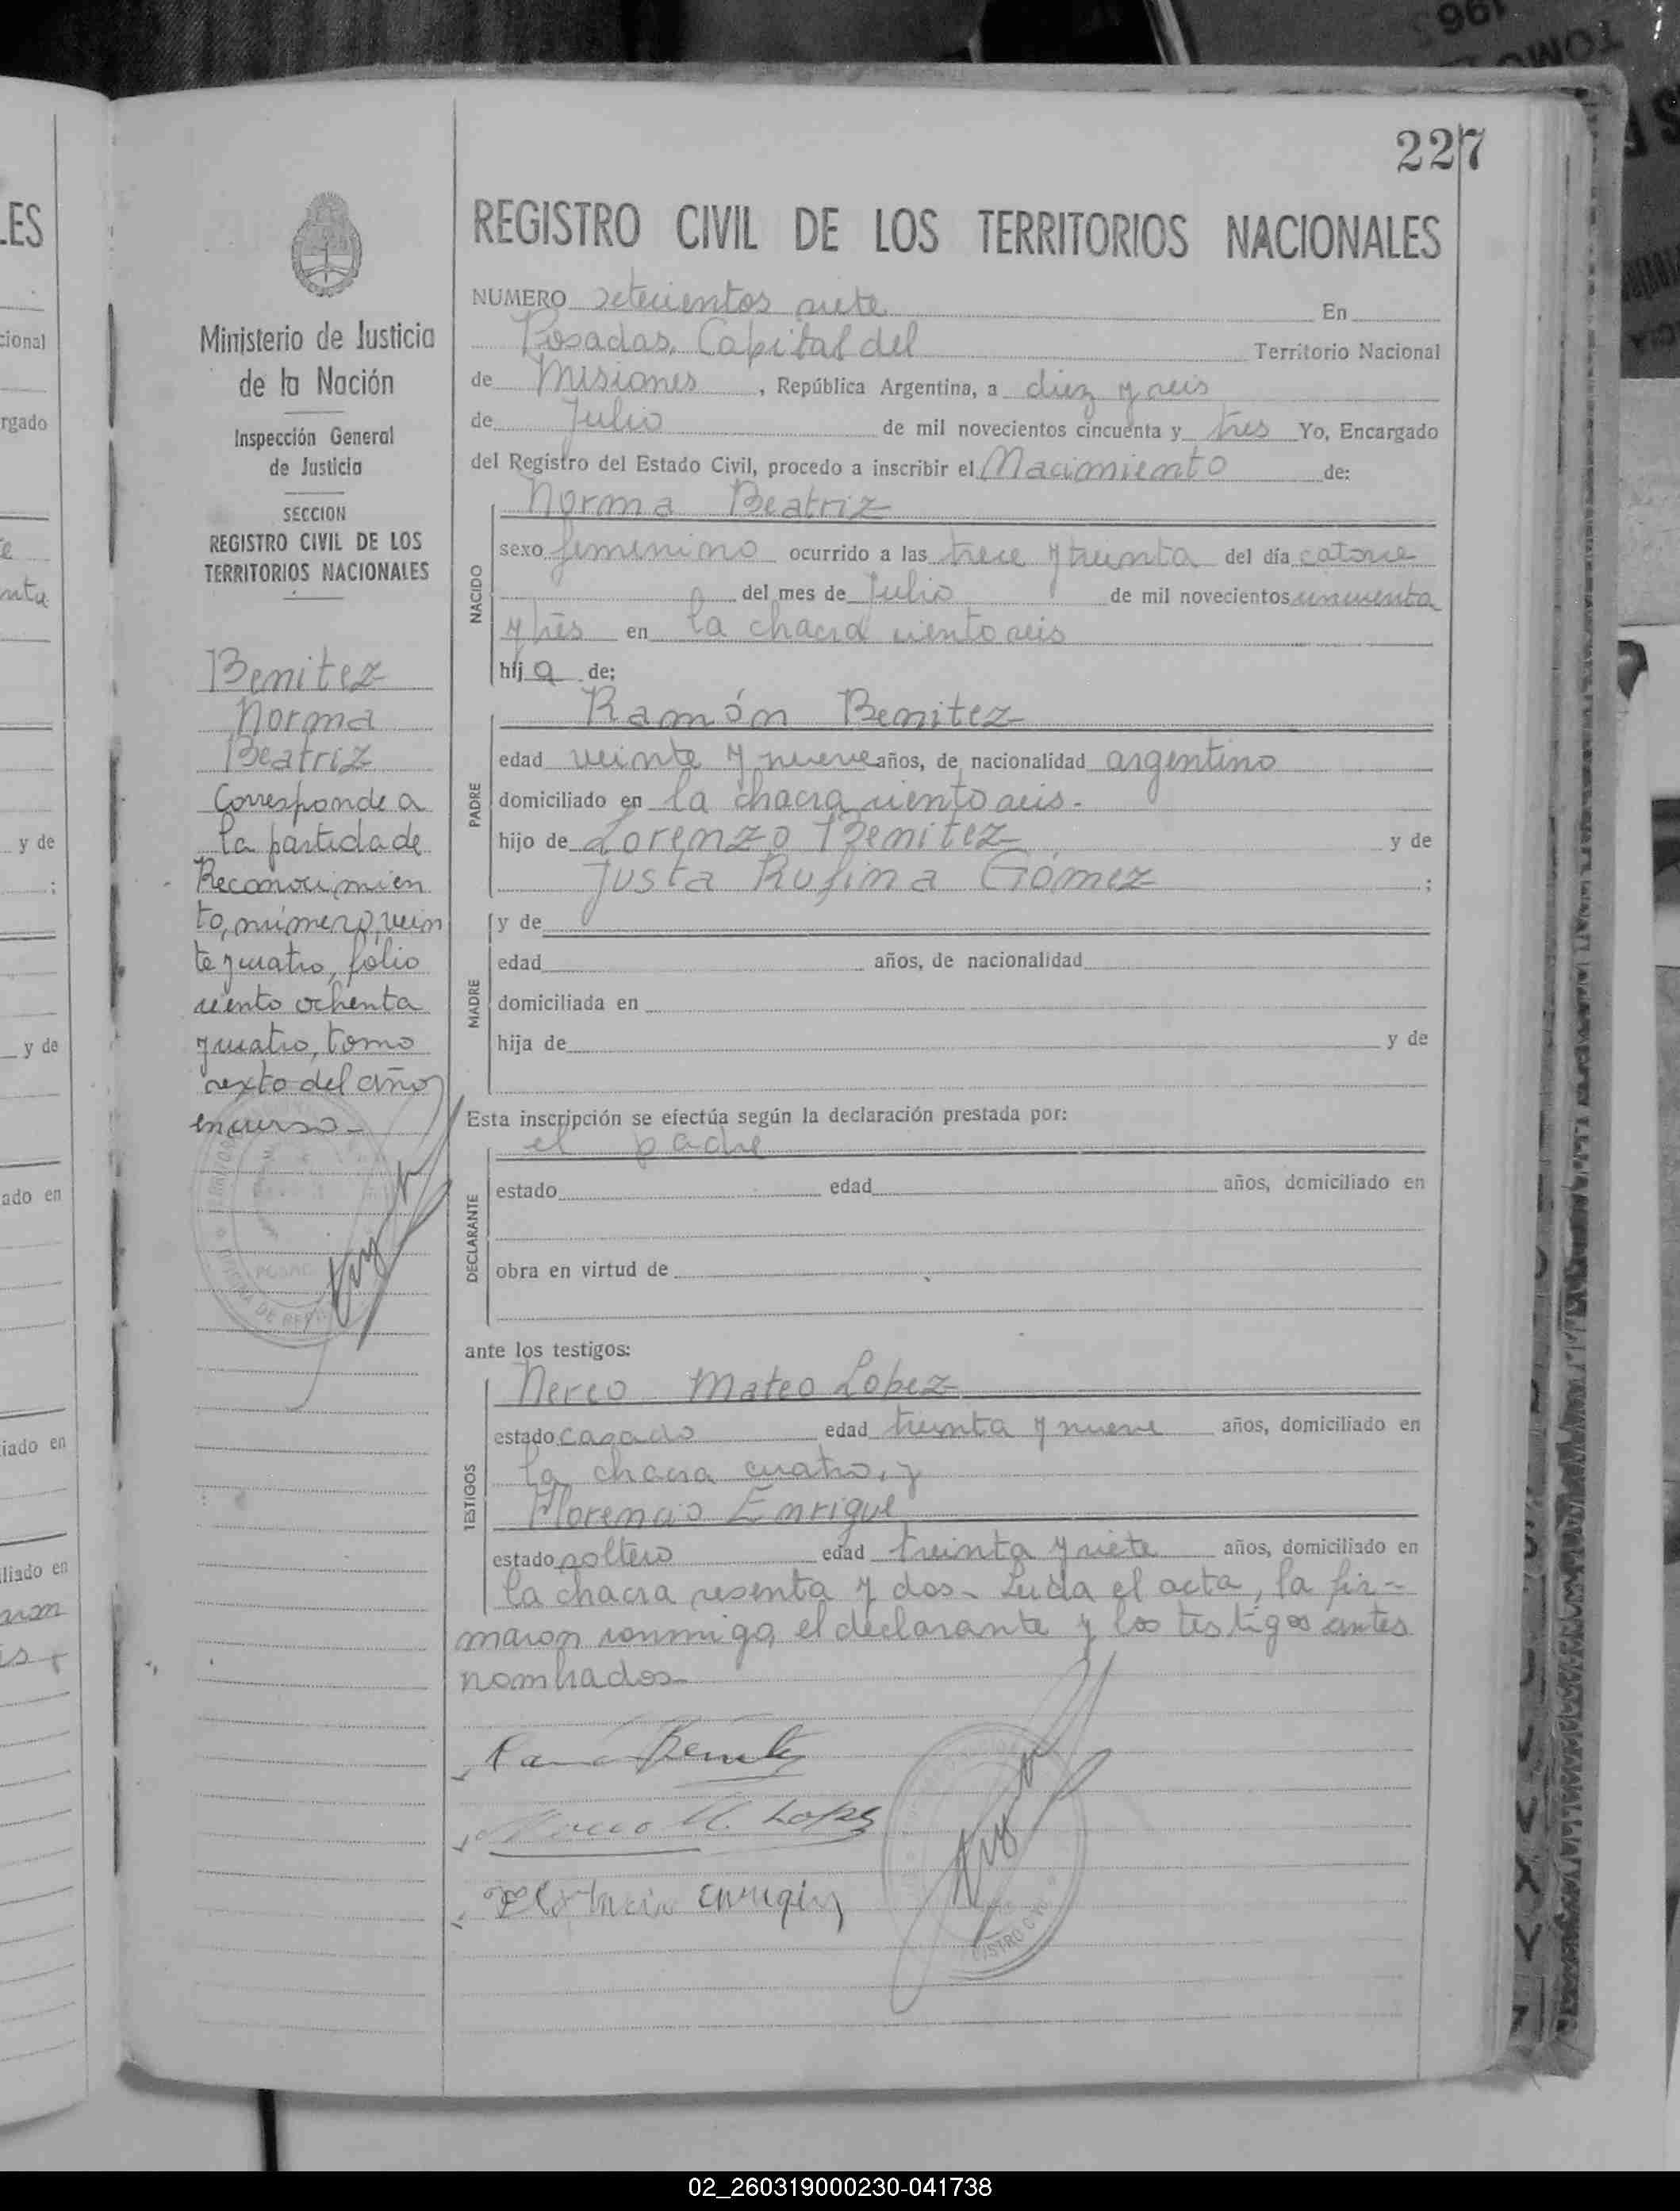 227
REGISTRO CIVIL DE LOS TERRITORIOS NACIONALES
Ministerio de Justicia
de la Nación
Inspección General
de Justicia
SECCION
REGISTRO CIVIL DE LOS
TERRITORIOS NACIONALES
Benitez
Norma
Beatriz
Corresponde a
la partida de
Reconocimien
to, número, vein
te y cuatro, folio
ciento ochenta
y cuatro, tomo
sexto del año
en curso
NUMERO setecientos siete En
Posadas, Capital del Territorio Nacional
de Misiones, República Argentina, a diez y seis
de Julio de mil novecientos cincuenta y tres Yo, Encargado
del Registro del Estado Civil, procedo a inscribir el Nacimiento de:
NACIDO
Norma Beatriz
sexo femenino ocurrido a las trece y treinta del día catorce
del mes de Julio de mil novecientos cincuenta
y tres en la chacra ciento seis
hija de:
PADRE
Ramón Benitez
edad veinte y nueve años, de nacionalidad argentino
domiciliado en la chacra ciento seis.-
hijo de Lorenzo Benitez y de
Justa Rufina Gómez ;
MADRE
y de
edad años, de nacionalidad
domiciliada en
hija de y de
Esta inscripción se efectúa según la declaración prestada por:
DECLARANTE
el padre
estado edad años, domiciliado en
obra en virtud de
ante los testigos:
TESTIGOS
Nereo Mateo Lopez
estado casado edad treinta y nueve años, domiciliado en
la chacra cuatro, y
Florencio Enrique
estado soltero edad treinta y siete años, domiciliado en
la chacra sesenta y dos- Leida el acta, la fir-
maron conmigo, el declarante y los testigos antes
nombrados-
Ramón Benitez
Nereo M. Lopez
02_260319000230-041738